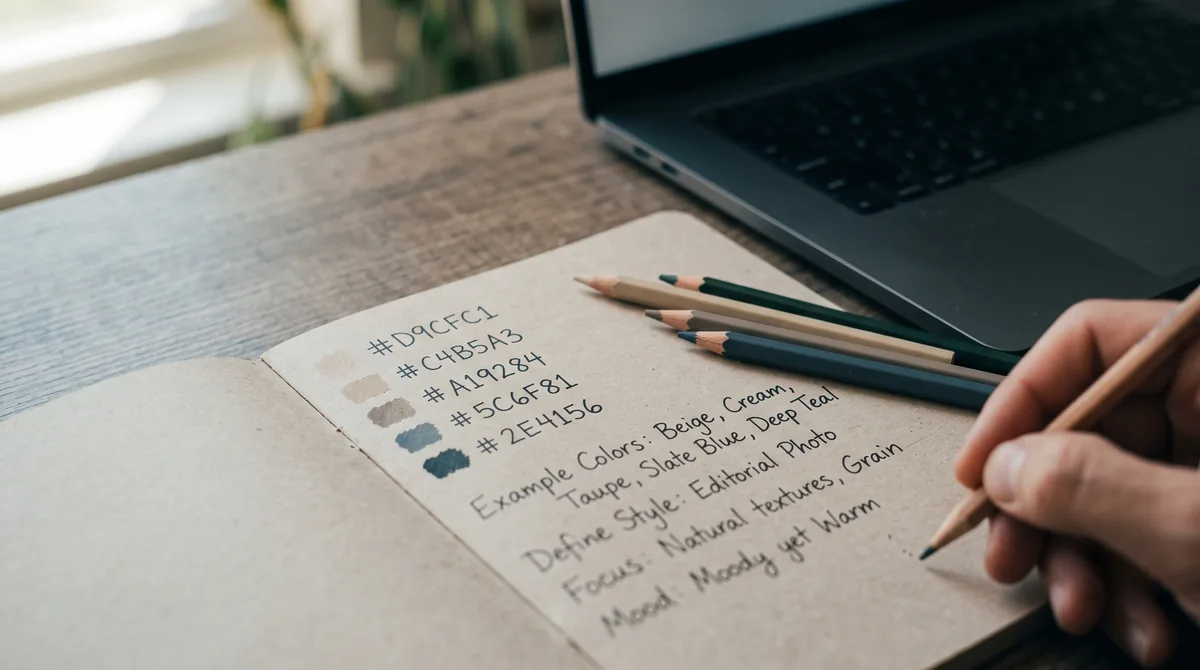 #D9CFC1
#C4B5A3
#A19284
#5C6F81
#2E4156
Example Colors: Beige, Cream,
Taupe, Slate Blue, Deep Teal
Define Style: Editorial Photo
Focus: Natural textures, Grain
Mood: Moody yet Warm